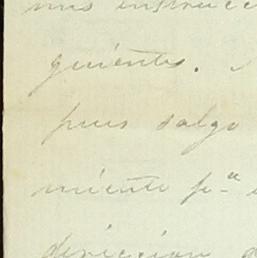 mis instrucc
guientes.
pues salgo
miento pª
direccion d